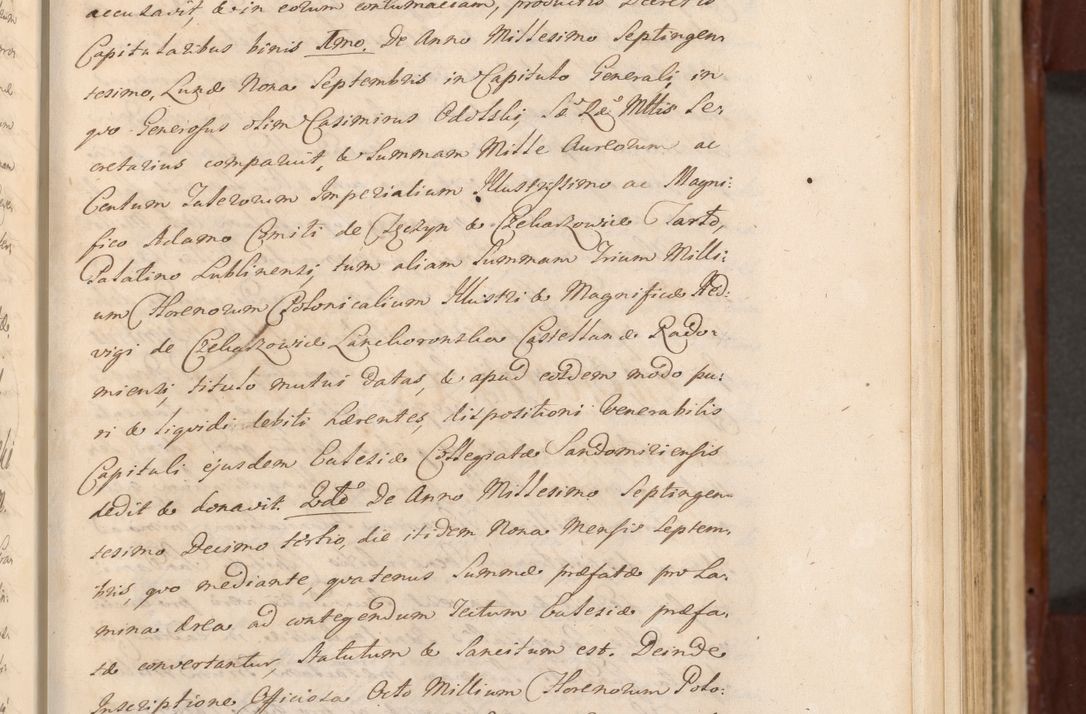 accusavit, & in eorum contumaciam, productis Decretis
Capitularibus binis 1mo. De Anno Millesimo Septingen:
tesimo, Lunæ Nona Septembris in Capitulo Generali, in
quo Generosus olim Casimirus Odolski, Sæ Ræ Mttis Se:
cretarius comparuit, & Summam Mille Aureorum ac
Centum Talerorum Imperialium Illustrissimo ac Magni:
fico Adamo Comiti de Czekaszowice Tarło,
Palatino Lublinensi, tum aliam Summam Trium Milli:
um Florenorum Polonicalium Illustri & Magnificæ Hed:
vigi de Czekaszowice Lanckoronska Castellanæ Rado:
miensi, titulo mutui datas, & apud eosdem modo pu:
ri & liquidi debiti hærentes, dispositioni Venerabilis
Capituli ejusdem Eclesiæ Collegiatæ Sandomiriensis
dedit & donavit. 2do De Anno Millesimo Septingen:
tesimo Decimo tertio, die itidem Nona Mensis Septem:
bris, quo mediante, quatenus Summæ præfatæ pro La:
mina ærea ad contegendum Tectum Eclesiæ præfa:
tæ convertantur, Statutum & Sancitum est. Deinde
Inscriptione Officiosa Octo Millium Florenorum Polo: